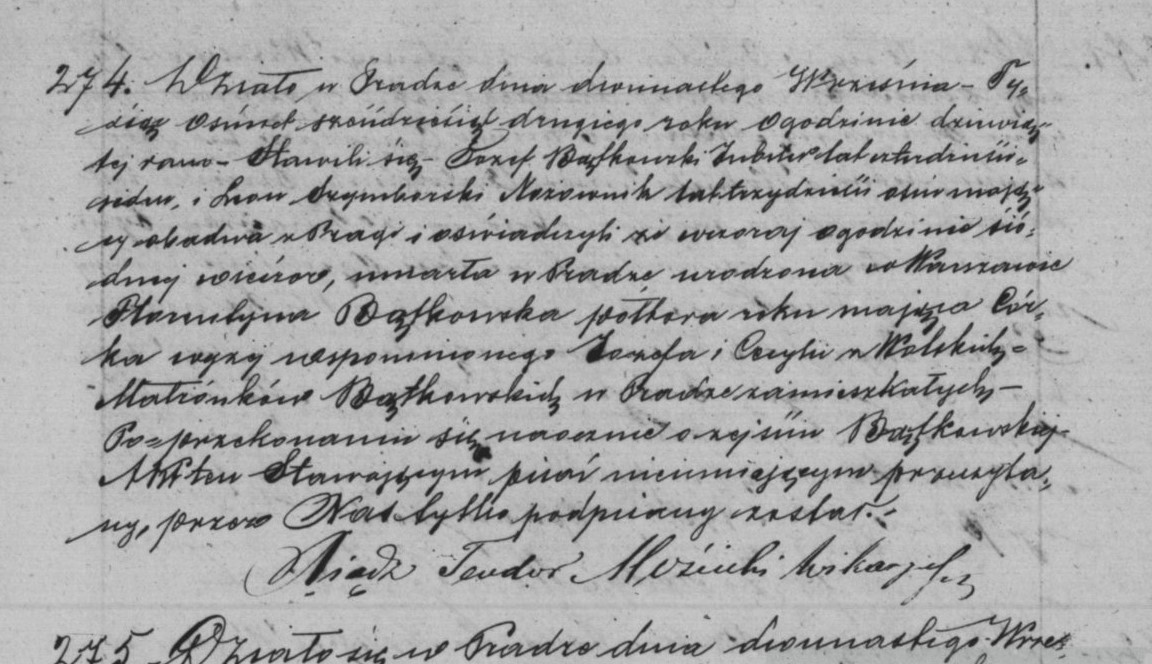 274. Działo w Pradze dnia dwunastego Września – Ty-
siąc osimset sześdziesiąt drugiego roku o godzinie dziewią-
tej rano – Stawili się – Józef Bątkowski lat
i Leon Szymborski Nożownik lat trzydzieści ośm mają-
cy obadwa z Pragi i oświadczyli że wczoraj o godzinie sió-
dmej wieczór, umarła w Pradze urodzona w Warszawie
Bątkowska półtora roku mająca Cór-
ka wyżej wspomnionego Józefa i Cecylii z Wolskich –
Małżonków Bątkowskich w Pradze zamieszkałych –
Po przekonaniu się naocznie o zejściu Bątkowskiej
Akt ten Stawającym pisać nieumiejącym przeczyta-
ny, przez Nas tylko podpisany został. –
Xiądz Teodor Wikary
275. Działo się w Pradze dnia dwunastego Wrześ